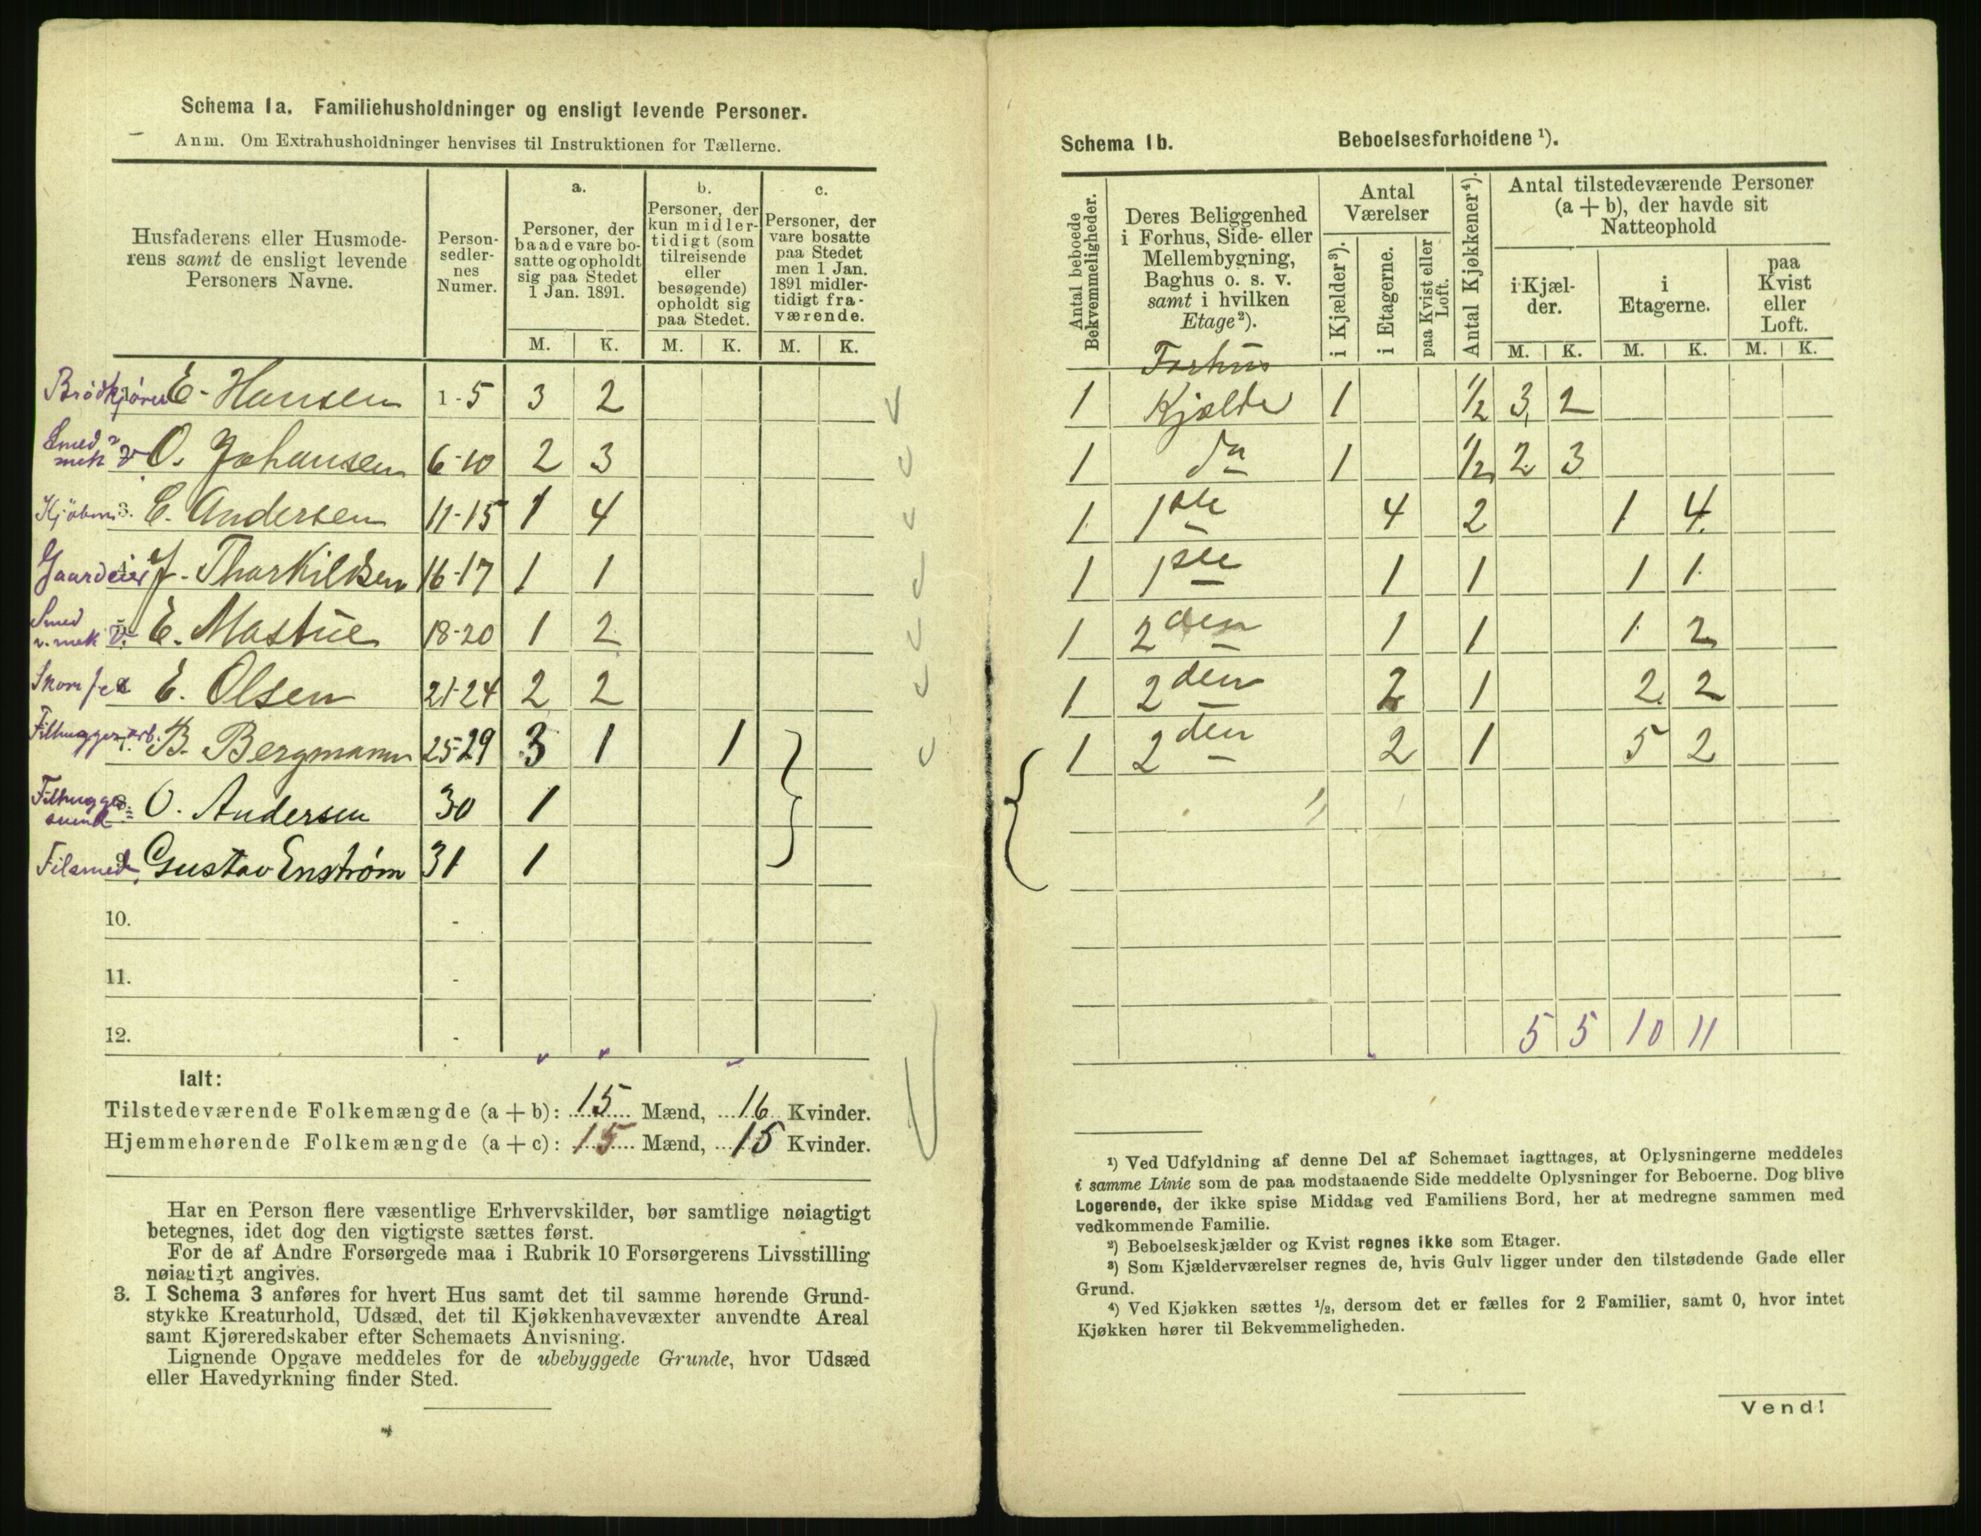 Schema 1a. Familiehusholdninger og ensligt levende Personer.
Anm. Om Extrahusholdninger henvises til Instruktionen for Tællerne.
Husfaderens eller Husmode-
rens samt de ensligt levende
Personers Navne.
Person-
sedler-
nes
Numer.
a.
Personer, der
baade vare bo-
satte og opholdt
sig paa Stedet
1 Jan. 1891.
b.
Personer, der
kun midler-
tidigt (som
tilreisende
eller
besøgende)
opholdt sig
paa Stedet.
c.
Personer, der
vare bosatte
paa Stedet
men 1 Jan.
1891 midler-
tidigt fra-
værende.
M. K. M. K. M. K.
Brödkjører E. Hansen 1-5 3 2
Smed mek v O. Johansen 6-10 2 3
Kjöbm 3. E. Andersen 11-15 1 4
Gaardeier J. Tharkildsen 16-17 1 1
Smed v. mek v. E. Mastue 18-20 1 2
E. Olsen 21-24 2 2
Filhuggerarb. B. Bergmann 25-29 3 1 1
Filhugger svend O. Andersen 30 1
Filsmed Gustav Enstrøm 31 1
10. -
11. -
12. -
Ialt:
Tilstedeværende Folkemængde (a + b): 15 Mænd, 16 Kvinder.
Hjemmehørende Folkemængde (a + c): 15 Mænd, 15 Kvinder.
Har en Person flere væsentlige Erhvervskilder, bør samtlige nøiagtigt
betegnes, idet dog den vigtigste sættes først.
For de af Andre Forsørgede maa i Rubrik 10 Forsørgerens Livsstilling
nøiagtigt angives.
3. I Schema 3 anføres for hvert Hus samt det til samme hørende Grund-
stykke Kreaturhold, Udsæd, det til Kjøkkenhavevæxter anvendte Areal
samt Kjøreredskaber efter Schemaets Anvisning.
Lignende Opgave meddeles for de ubebyggede Grunde, hvor Udsæd
eller Havedyrkning finder Sted.
Schema 1b. Beboelsesforholdene ¹).
Antal beboede
Bekvemmeligheder.
Deres Beliggenhed
i Forhus, Side- eller
Mellembygning,
Baghus o. s. v.
samt i hvilken
Etage²).
Antal
Værelser
i Kjælder³).
i Etagerne.
paa Kvist eller
Loft.
Antal Kjøkkener⁴).
Antal tilstedeværende Personer
(a + b), der havde sit
Natteophold
i Kjæl-
der.
i
Etagerne.
paa
Kvist
eller
Loft.
M. K. M. K. M. K.
Forhus
1 Kjælder 1 1/2 3 2
1 do 1 1/2 2 3
1 1ste 4 2 1 4
1 1ste 1 1 1 1
1 2den 1 1 1 2
1 2den 2 1 2 2
1 2den 2 1 5 2
5 5 10 11
¹) Ved Udfyldning af denne Del af Schemaet iagttages, at Oplysningerne meddeles
i samme Linie som de paa modstaaende Side meddelte Oplysninger for Beboerne. Dog blive
Logerende, der ikke spise Middag ved Familiens Bord, her at medregne sammen med
vedkommende Familie.
²) Beboelseskjælder og Kvist regnes ikke som Etager.
³) Som Kjælderværelser regnes de, hvis Gulv ligger under den tilstødende Gade eller
Grund.
⁴) Ved Kjøkken sættes ½, dersom det er fælles for 2 Familier, samt 0, hvor intet
Kjøkken hører til Bekvemmeligheden.
Vend!